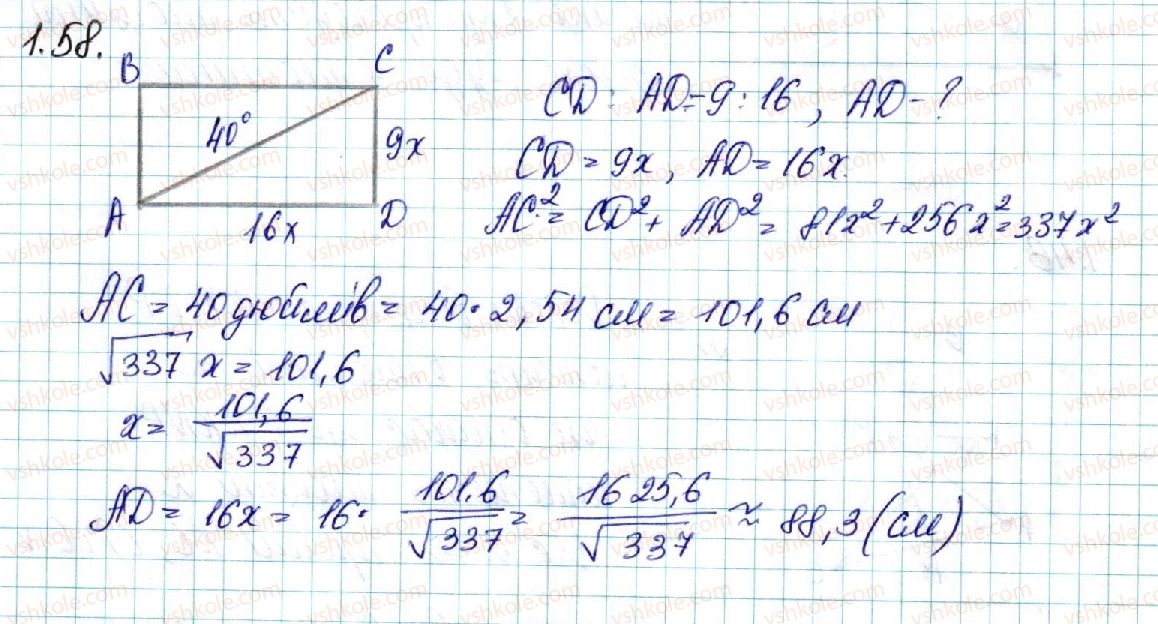 1.58.
B C
40°
9x
A D
16x
CD : AD = 9 : 16 , AD - ?
CD = 9x , AD = 16x.
AC² = CD² + AD² = 81x² + 256x² = 337x²
AC = 40 дюймів = 40 · 2,54 см = 101,6 см
√337 x = 101,6
x = 101,6 / √337
AD = 16x = 16 · 101,6 / √337 = 1625,6 / √337 ≈ 88,3 (см)
vshkole.com